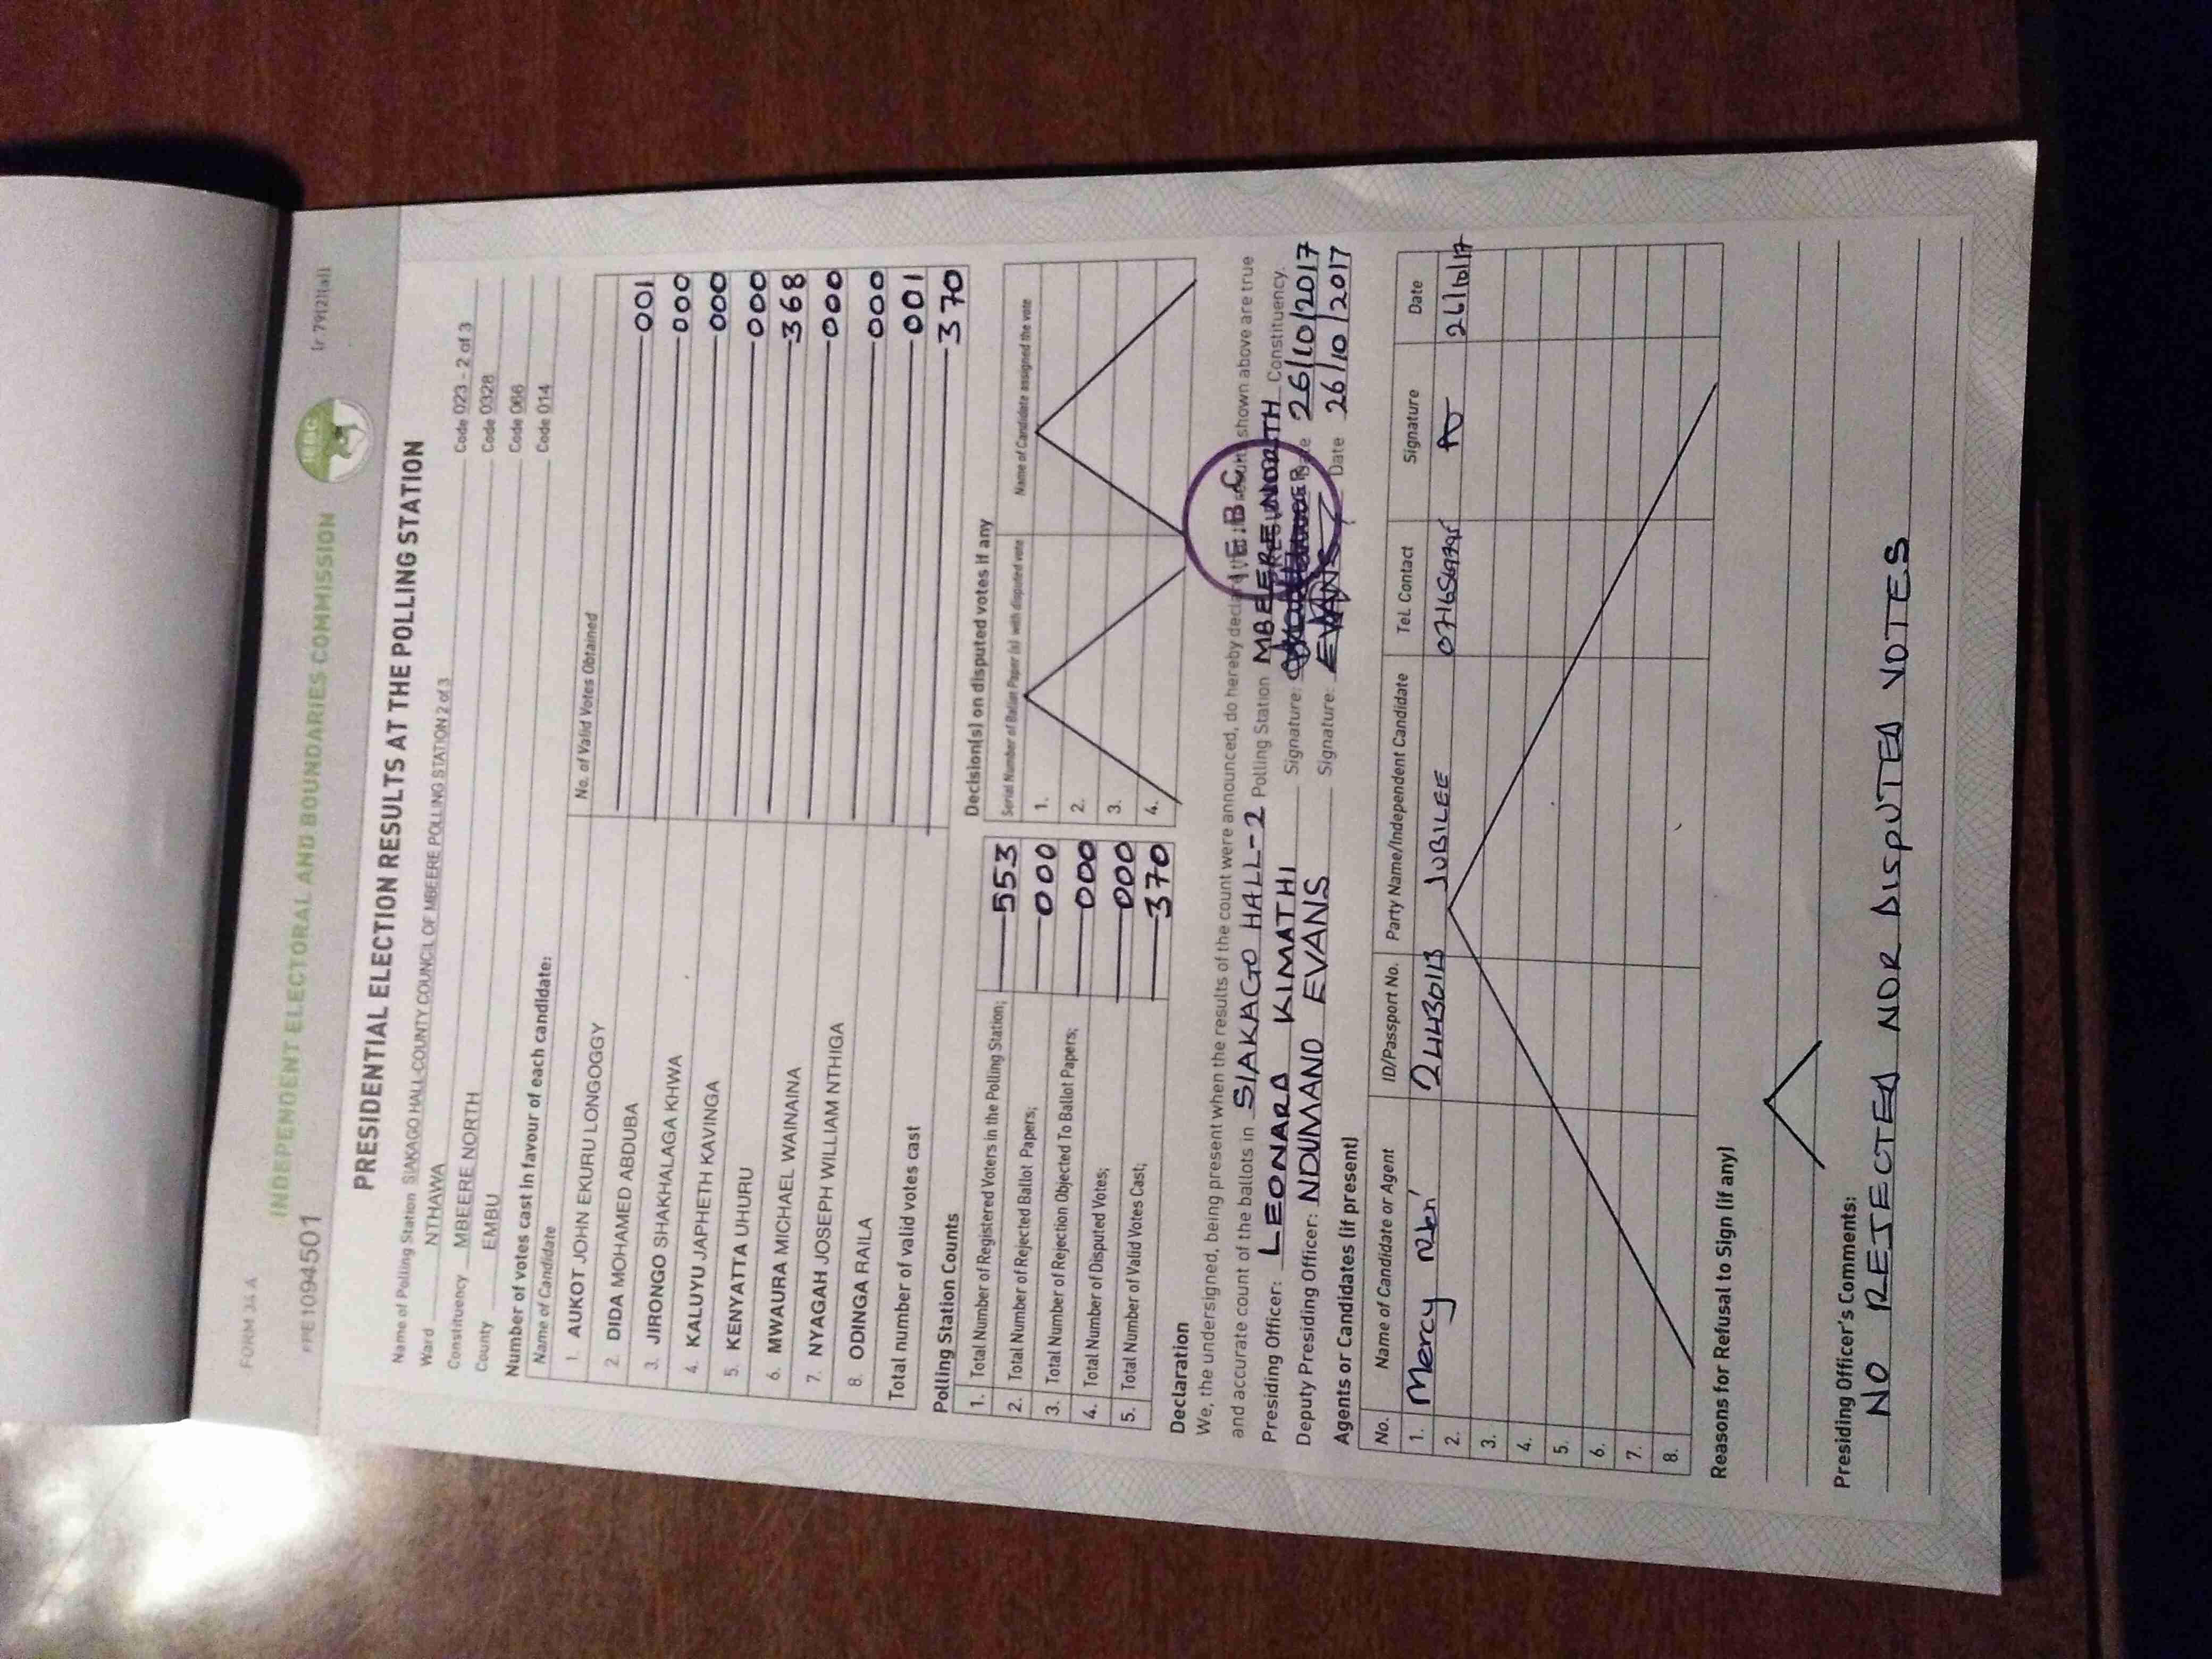 FORM 34 A
(r 79(2)(a))
INDEPENDENT ELECTORAL AND BOUNDARIES COMMISSION
IEBC
PRE1094501
PRESIDENTIAL ELECTION RESULTS AT THE POLLING STATION
Name of Polling Station SIAKAGO HALL-COUNTY COUNCIL OF MBEERE POLLING STATION 2 of 3 Code 023 - 2 of 3
Ward NTHAWA Code 0328
Constituency MBEERE NORTH Code 066
County EMBU Code 014
Number of votes cast in favour of each candidate:
Name of Candidate No. of Valid Votes Obtained
1. AUKOT JOHN EKURU LONGOGGY 001
2. DIDA MOHAMED ABDUBA 000
3. JIRONGO SHAKHALAGA KHWA 000
4. KALUYU JAPHETH KAVINGA 000
5. KENYATTA UHURU 368
6. MWAURA MICHAEL WAINAINA 000
7. NYAGAH JOSEPH WILLIAM NTHIGA 000
8. ODINGA RAILA 001
Total number of valid votes cast 370
Polling Station Counts
1. Total Number of Registered Voters in the Polling Station; 553
2. Total Number of Rejected Ballot Papers; 000
3. Total Number of Rejection Objected To Ballot Papers; 000
4. Total Number of Disputed Votes; 000
5. Total Number of Valid Votes Cast; 370
Decision(s) on disputed votes if any
Serial Number of Ballot Paper (s) with disputed vote Name of Candidate assigned the vote
1.
2.
3.
4.
Declaration
We, the undersigned, being present when the results of the count were announced, do hereby declare shown above are true
and accurate count of the ballots in SIAKAGO HALL-2 Polling Station MBEERE NORTH Constituency.
I.E.B.C
Presiding Officer: LEONARD KIMATHI Signature: Date 26/10/2017
Deputy Presiding Officer: NDUMAND EVANS Signature: EVANS Date 26/10/2017
Agents or Candidates (if present)
No. Name of Candidate or Agent ID/Passport No. Party Name/Independent Candidate Tel. Contact Signature Date
1. Mercy JUBILEE 26/10/17
2.
3.
4.
5.
6.
7.
8.
Reasons for Refusal to Sign (if any)
Presiding Officer's Comments:
NO REJECTED NOR DISPUTED VOTES